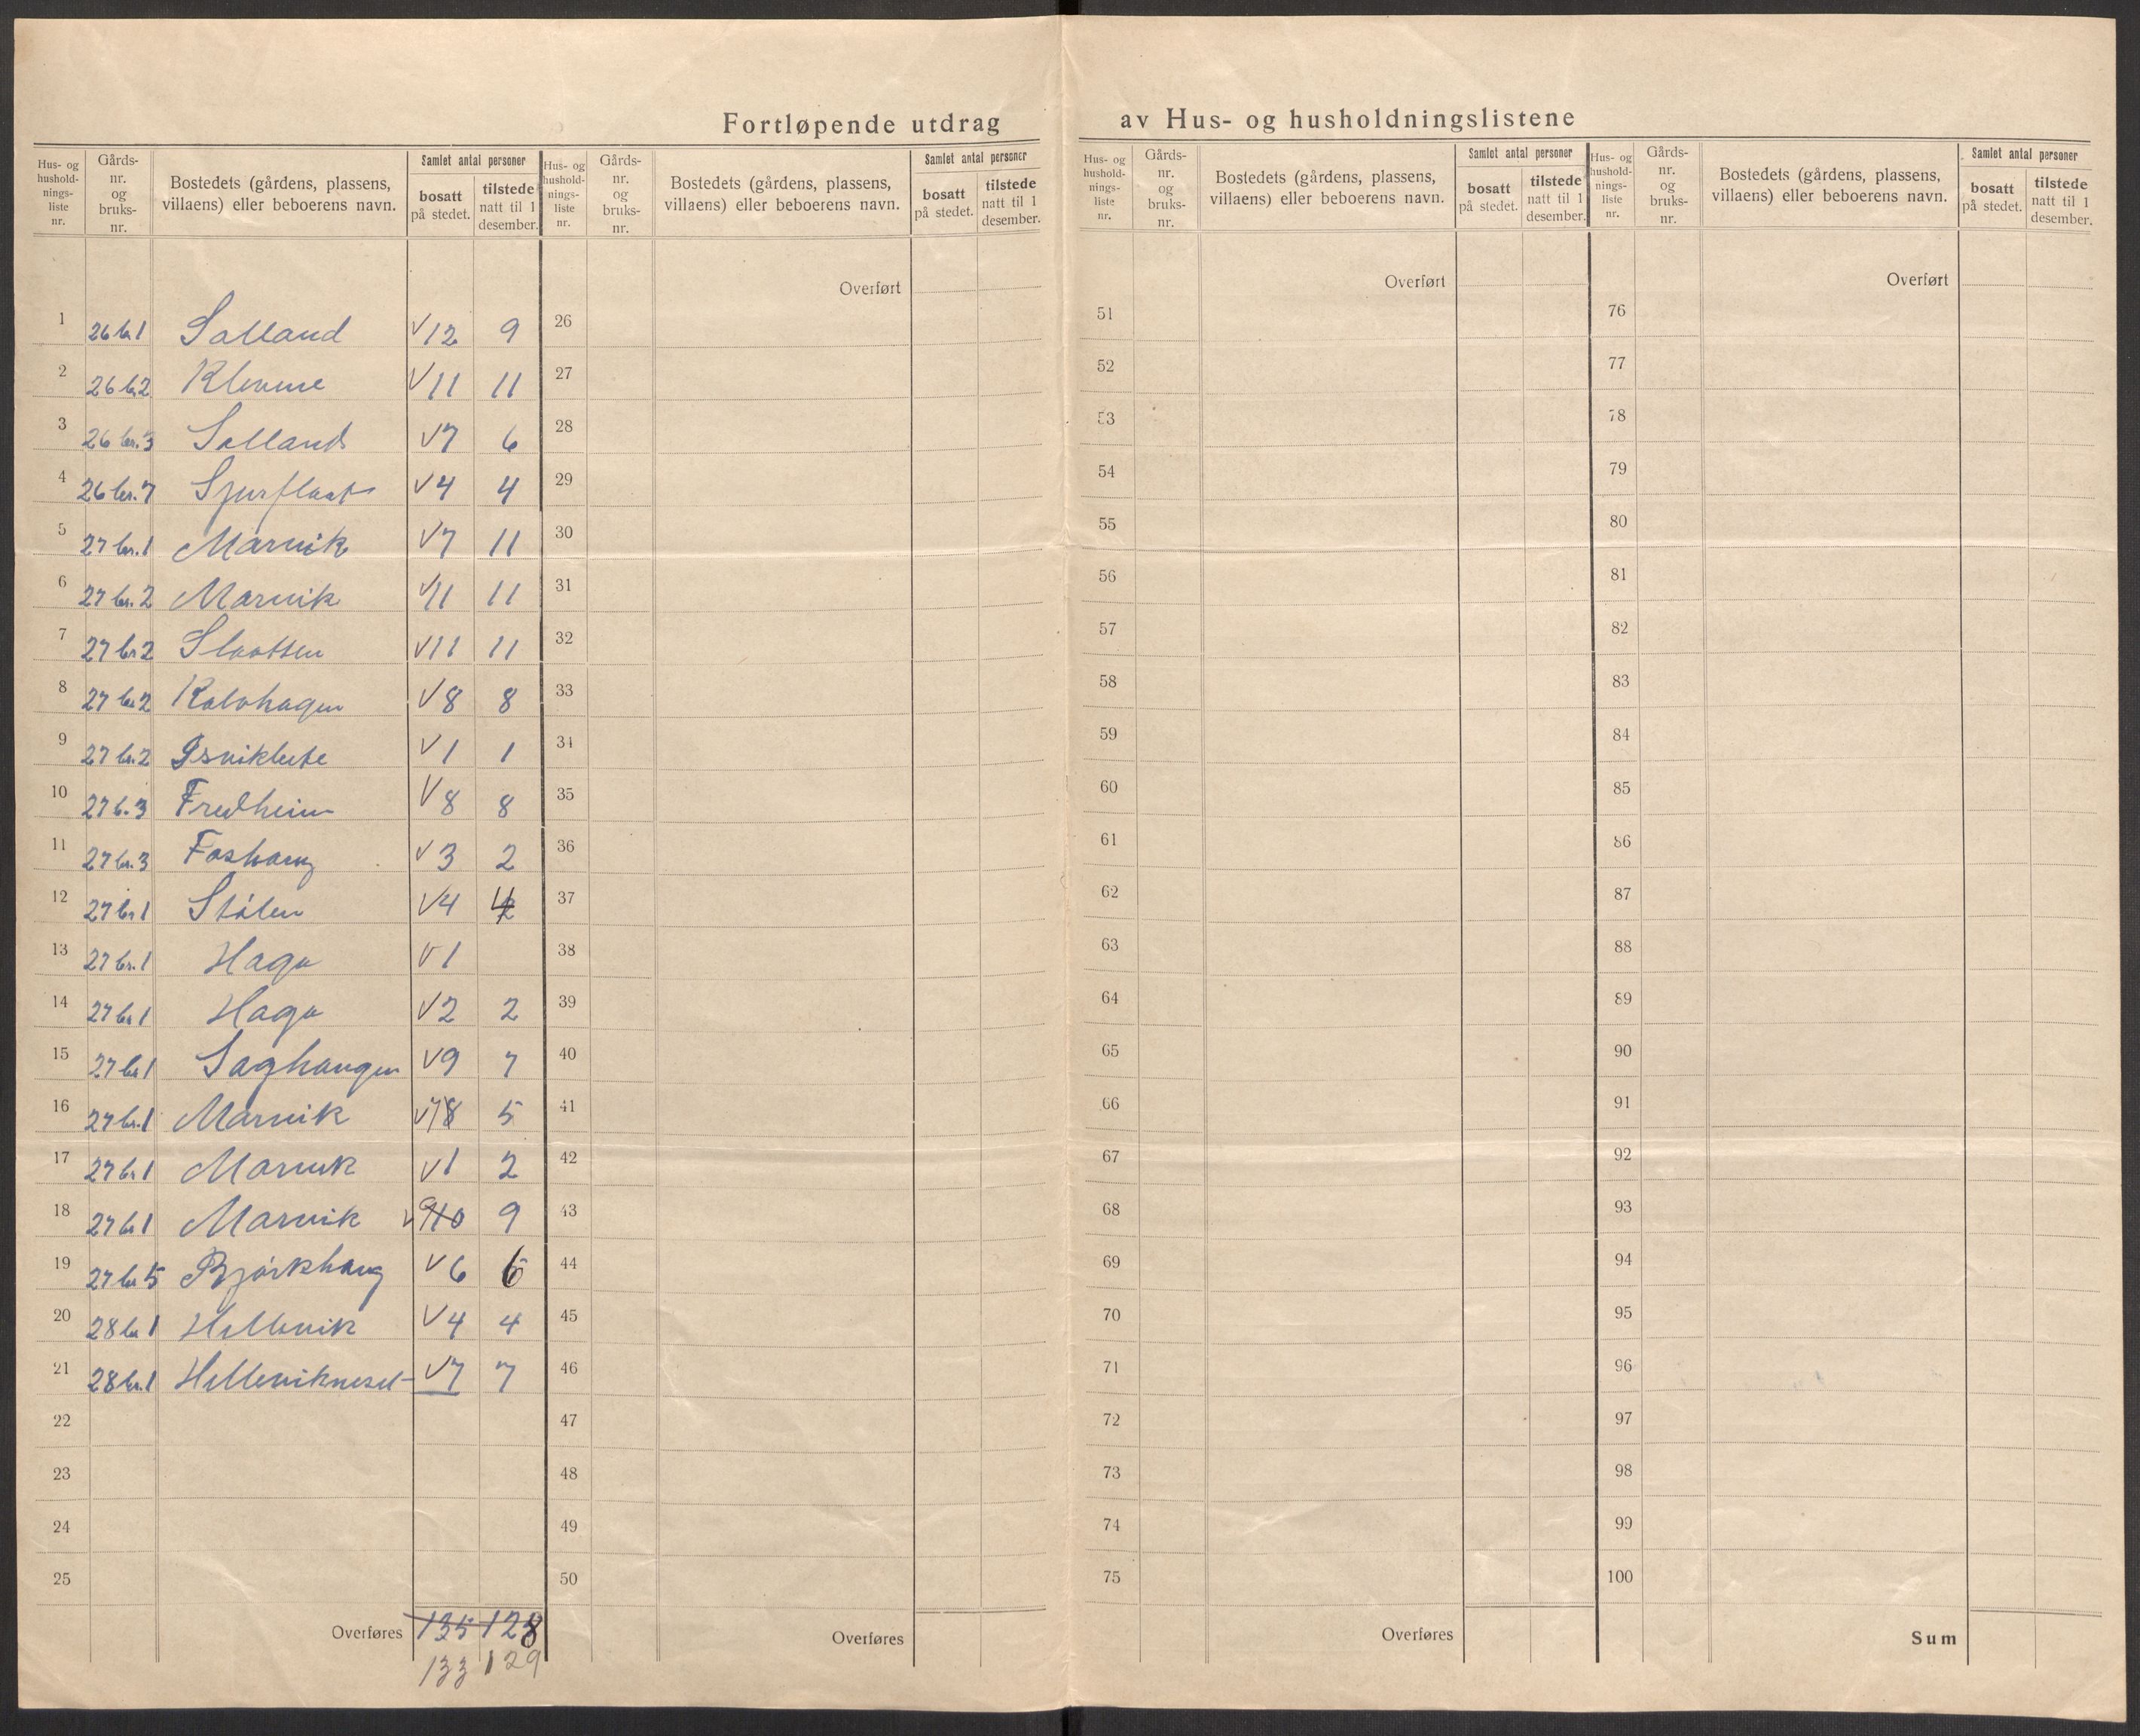 Fortløpende utdrag av Hus- og husholdningslistene
Hus- og hushold-nings-liste nr. Gårds-nr. og bruks-nr. Bostedets (gårdens, plassens, villaens) eller beboerens navn. Samlet antal personer bosatt på stedet. tilstede natt til 1 desember.
Hus- og hushold-nings-liste nr. Gårds-nr. og bruks-nr. Bostedets (gårdens, plassens, villaens) eller beboerens navn. Samlet antal personer bosatt på stedet. tilstede natt til 1 desember.
Hus- og hushold-nings-liste nr. Gårds-nr. og bruks-nr. Bostedets (gårdens, plassens, villaens) eller beboerens navn. Samlet antal personer bosatt på stedet. tilstede natt til 1 desember.
Hus- og hushold-nings-liste nr. Gårds-nr. og bruks-nr. Bostedets (gårdens, plassens, villaens) eller beboerens navn. Samlet antal personer bosatt på stedet. tilstede natt til 1 desember.
1 26 br 1 Salland V12 9
2 26 br 2 V11 11
3 26 br. 3 Salland V7 6
4 26 br. 7 V4 4
5 27 br. 1 Marvik V7 11
6 27 br. 2 Marvik V11 11
7 27 br 2 Slaatten V11 11
8 27 br 2 Kalvhagen V8 8
9 27 br. 2 V1 1
10 27 b. 3 Fredheim V8 8
11 27 br. 3 Foshaug V3 2
12 27 br 1 Stålen V4 4
13 27 br. 1 Haga V1
14 27 br 1 Haga V2 2
15 27 br 1 Saghaugen V9 7
16 27 br. 1 Marvik V78 5
17 27 br 1 Marvik V1 2
18 27 br 1 Marvik V9 10 9
19 27 br 5 Bjørkhaug V6 6
20 28 br 1 Hellevik V4 4
21 28 br. 1 Hellevikneset V7 7
22
23
24
25
Overføres 135 128
133 129
Overført
26
27
28
29
30
31
32
33
34
35
36
37
38
39
40
41
42
43
44
45
46
47
48
49
50
Overføres
Overført
51
52
53
54
55
56
57
58
59
60
61
62
63
64
65
66
67
68
69
70
71
72
73
74
75
Overføres
Overført
76
77
78
79
80
81
82
83
84
85
86
87
88
89
90
91
92
93
94
95
96
97
98
99
100
Sum